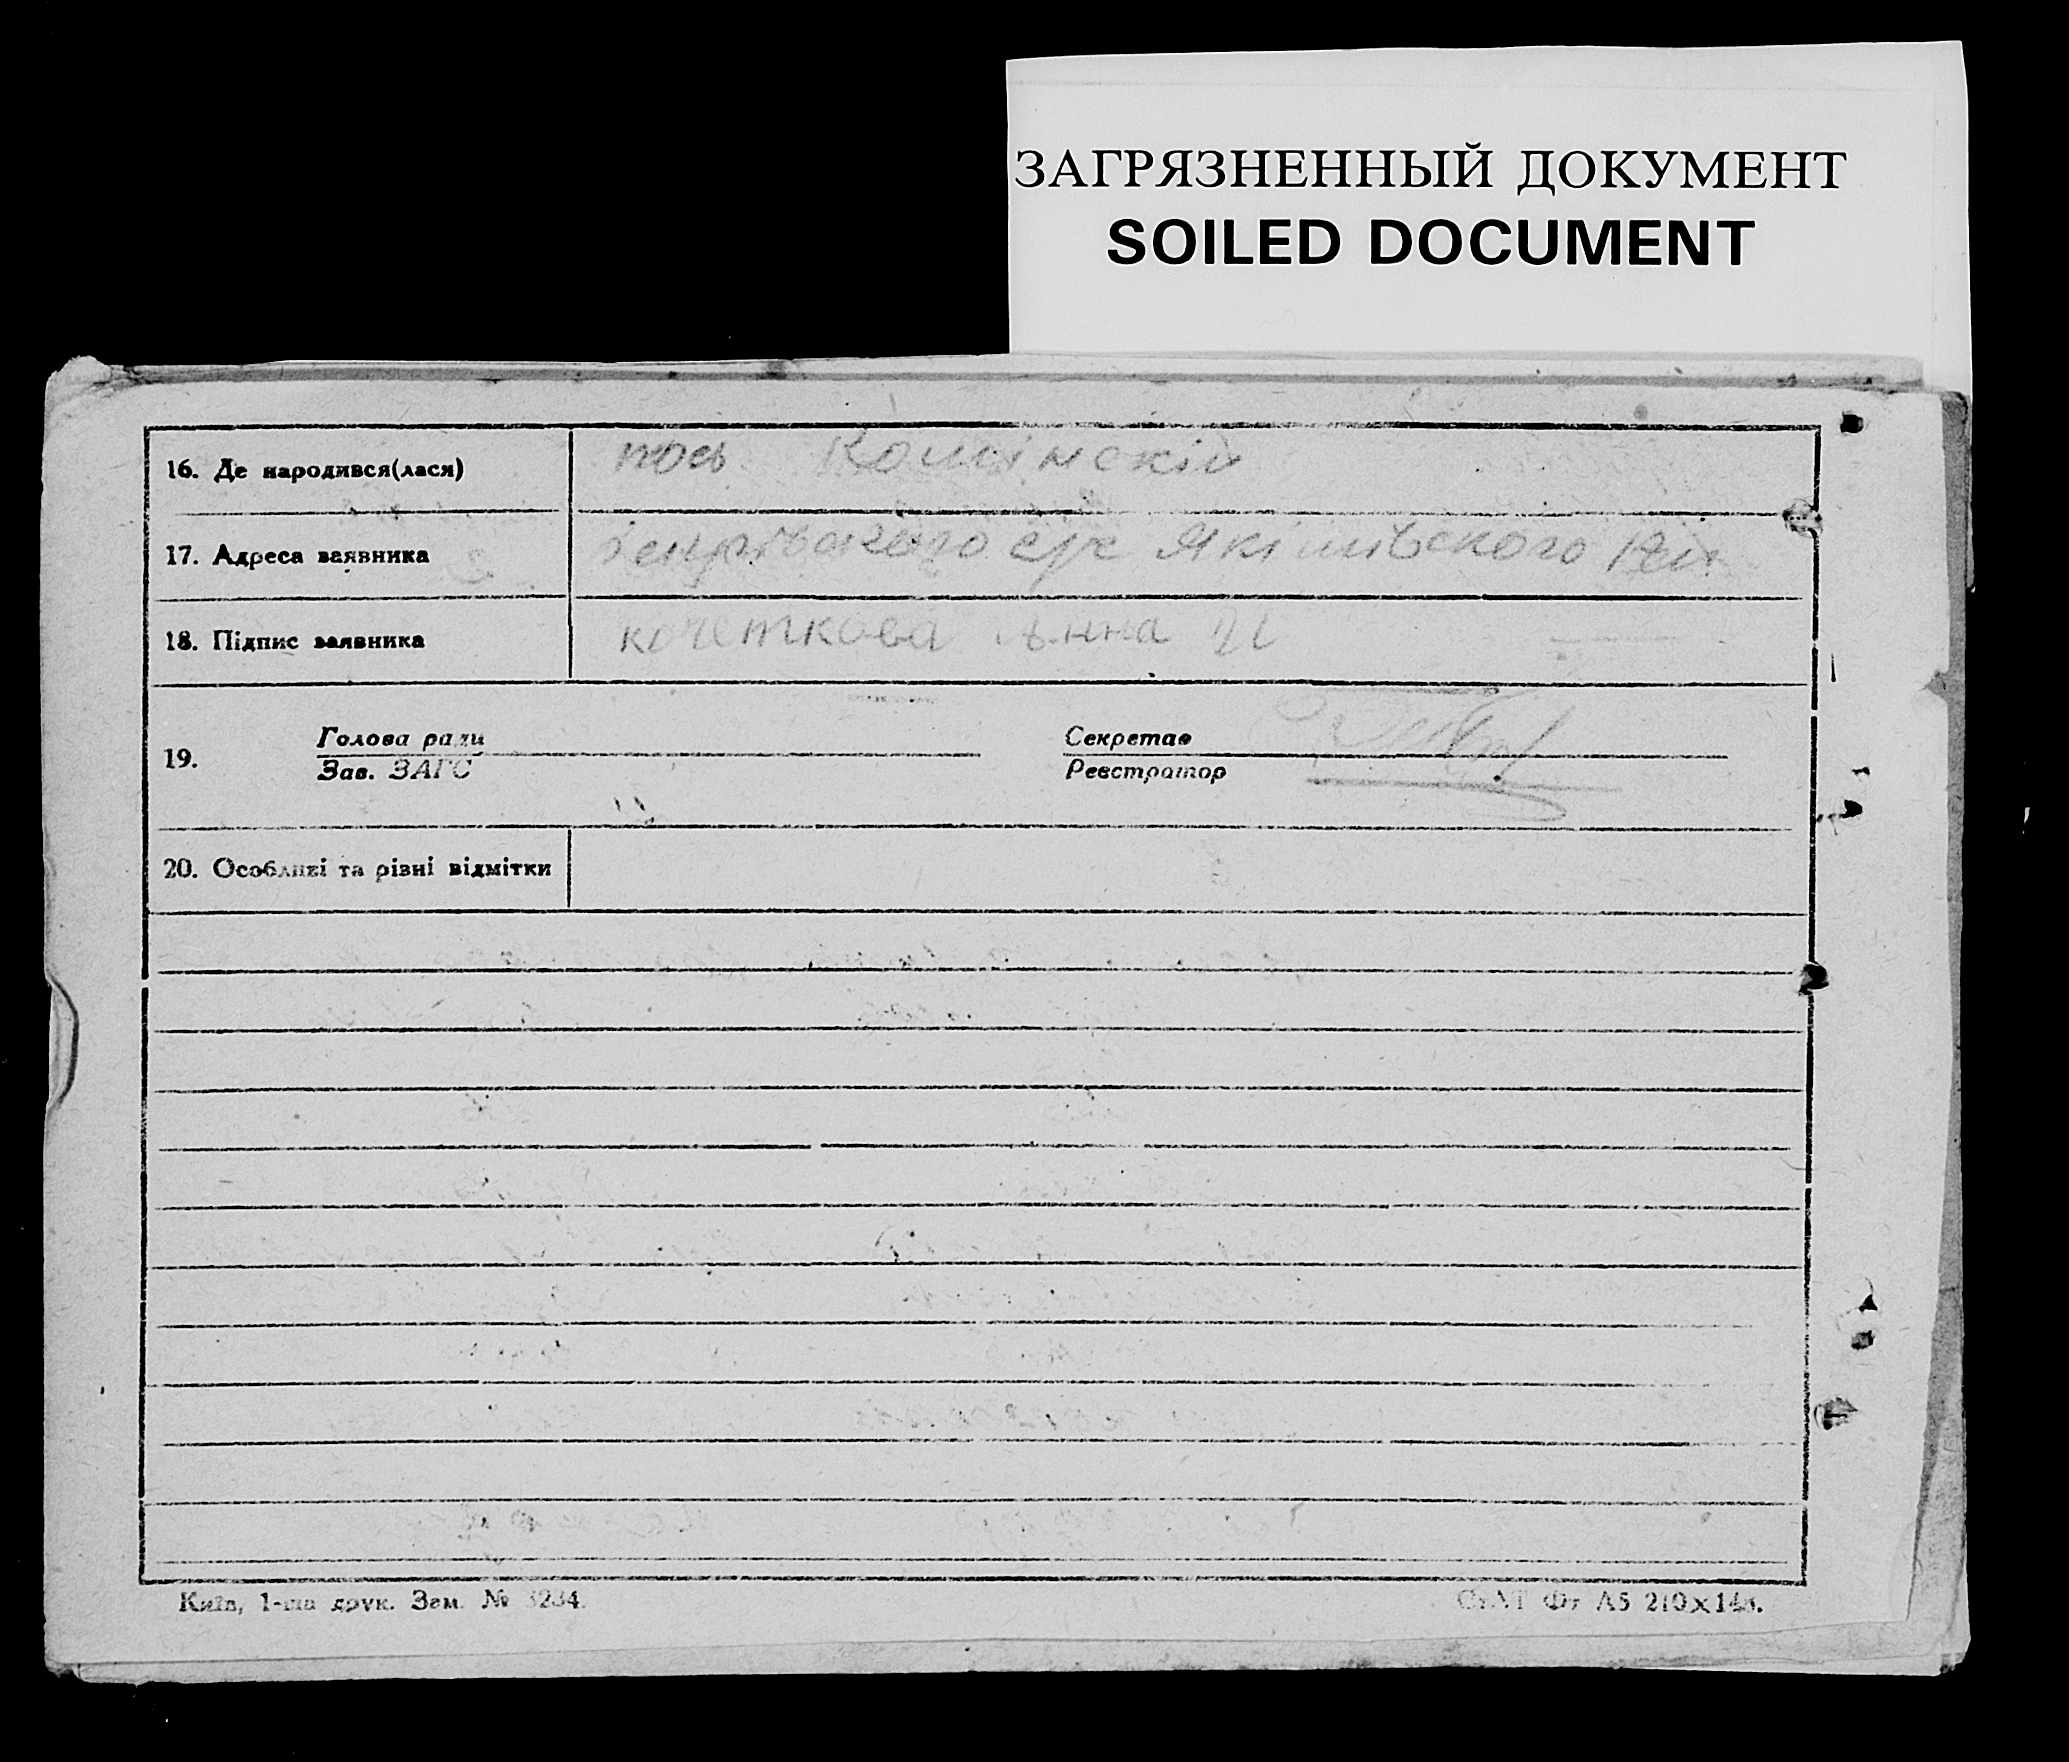 ЗАГРЯЗНЕННЫЙ ДОКУМЕНТ
SOILED DOCUMENT
16. Де народився(лася) пось
17. Адреса заявника с/р Якімівского
18. Підпис заявника кочеткова Анна
19. Голова ради Секретар
Зав. ЗАГС Реєстратор
20. Особливі та різні відмітки
Київ, 1-ша друк. Зам. №
Фт А5 210×148.